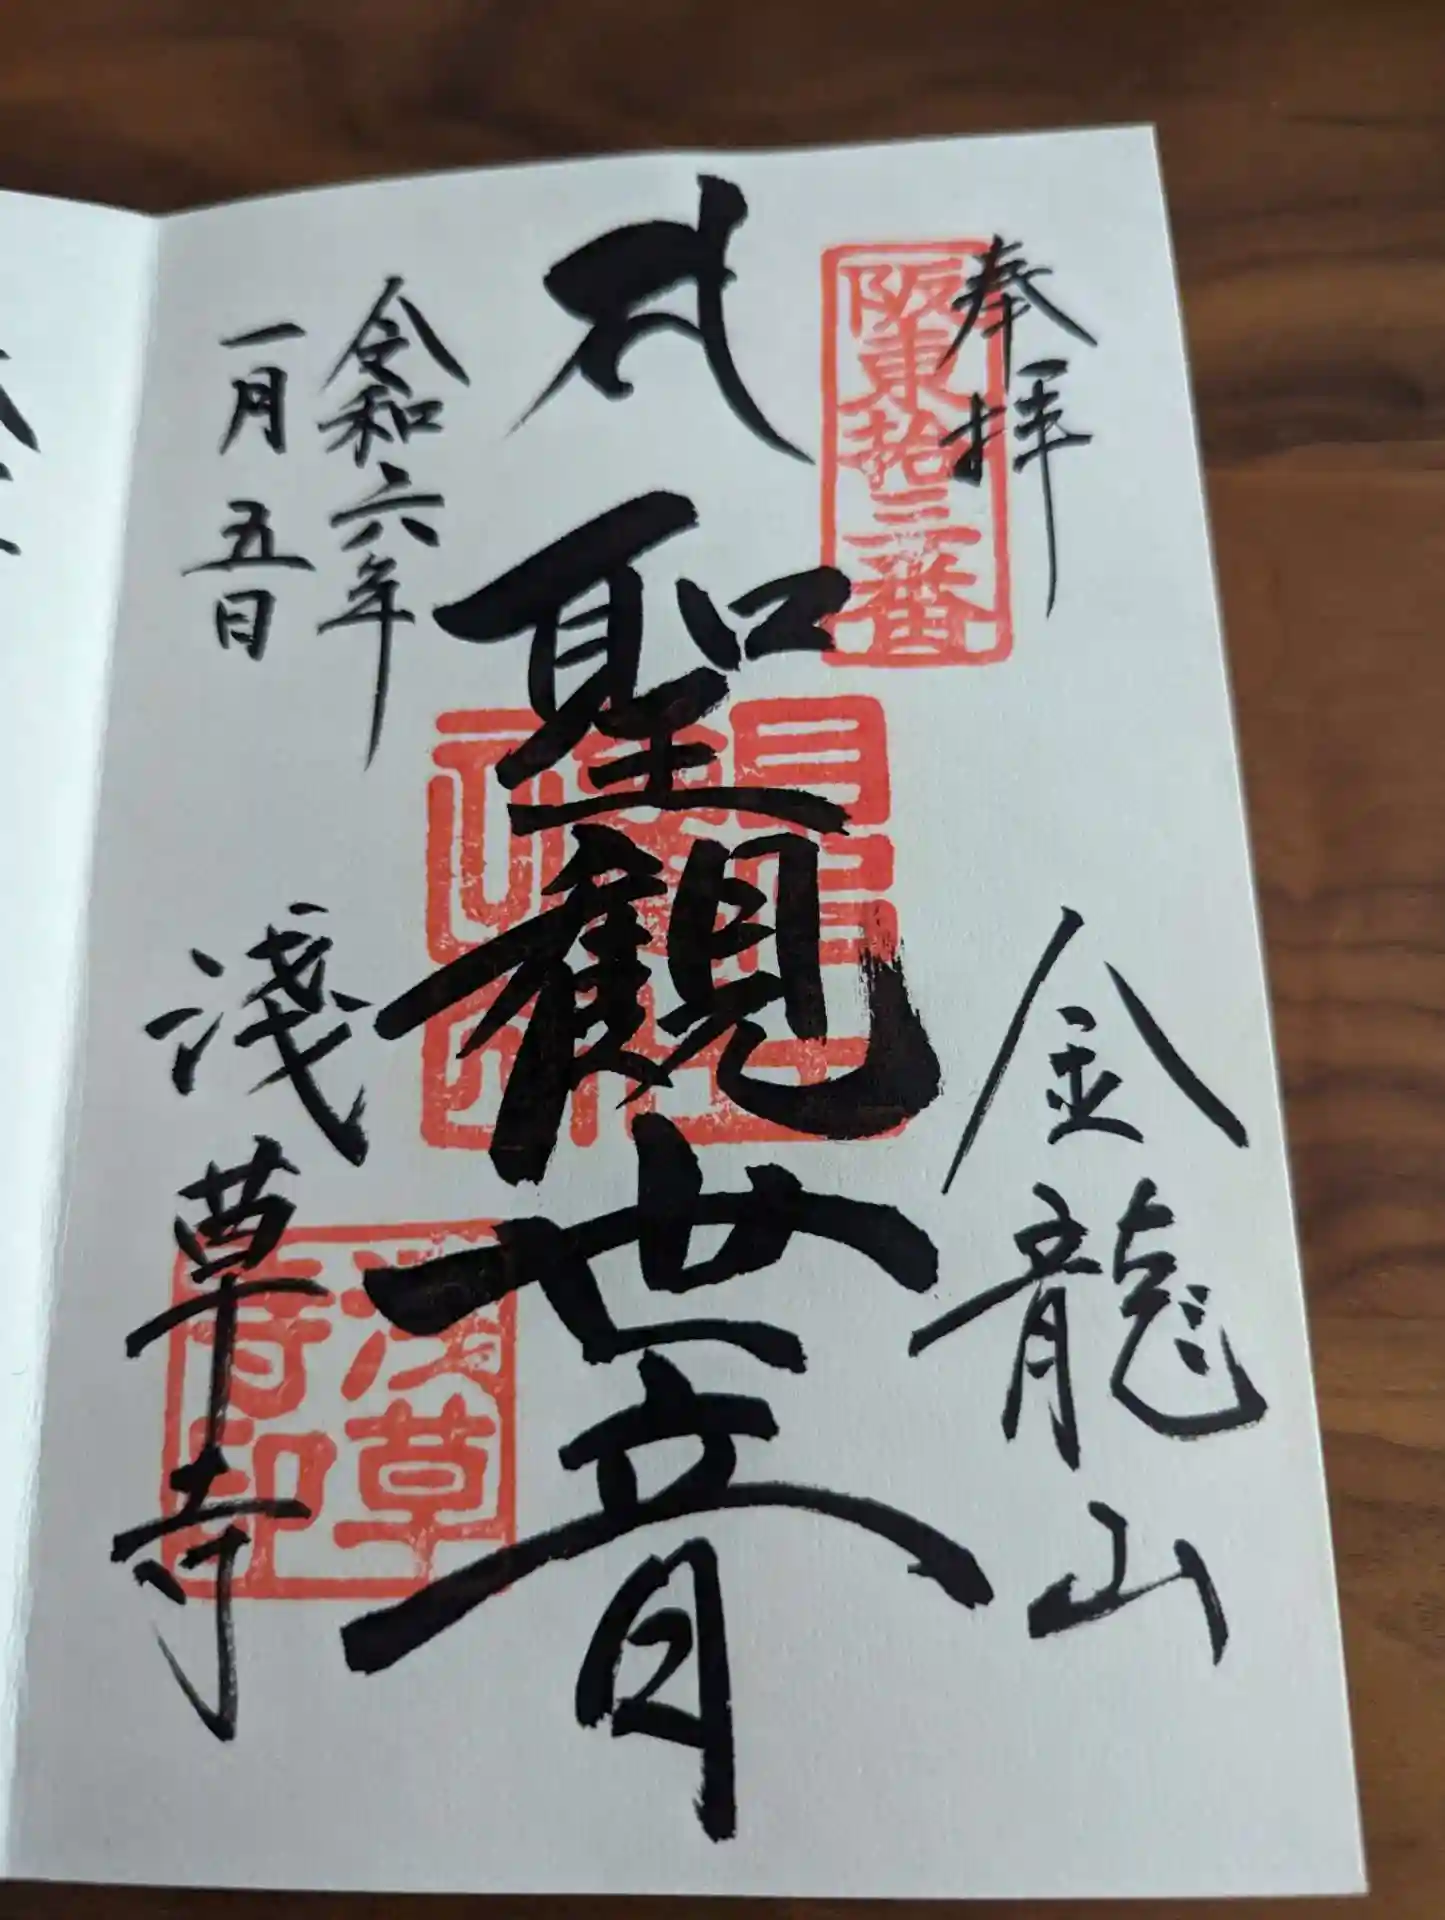 奉拝
阪東拾三番
金龍山
聖観世音
令和六年
一月五日
淺草寺
浅草
寺印